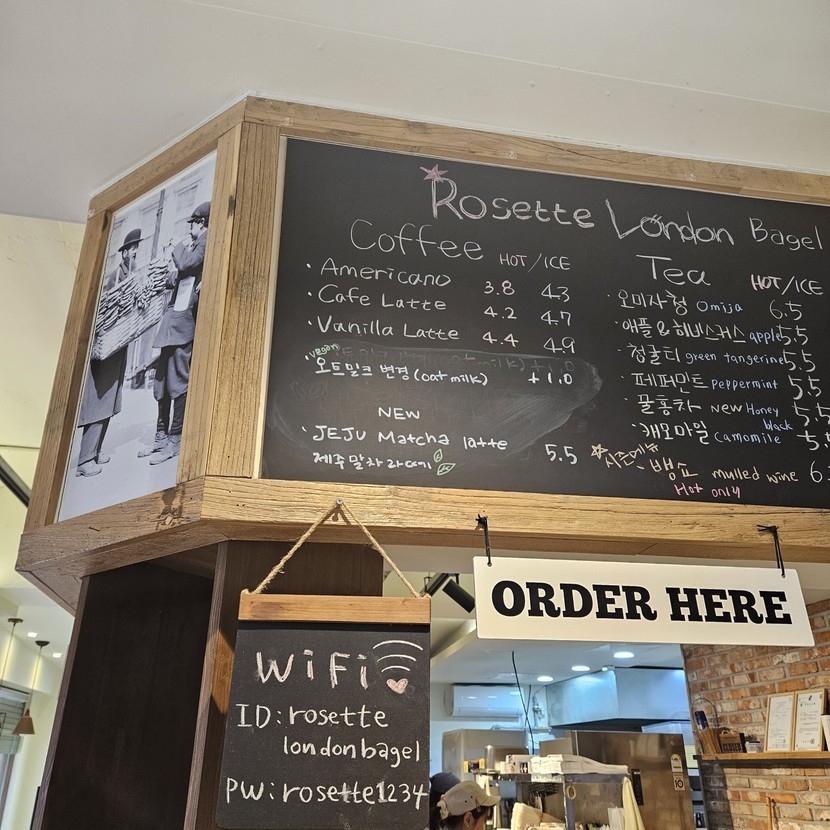 Rosette London Bagel
Coffee HOT/ICE
· Americano 3.8 4.3
· Cafe Latte 4.2 4.7
· Vanilla Latte 4.4 4.9
· vegan
오트밀크 변경 (oat milk) +1.0
NEW
· JEJU Matcha latte 5.5
제주말차라떼
Tea HOT/ICE
· 오미자청 Omija 6.5
· 애플&히비스커스 apple 5.5
· 청귤티 green tangerine 5.5
· 페퍼민트 peppermint 5.5
· 꿀홍차 NEW Honey black 5.5
· 캐모마일 camomile 5.5
시즌메뉴
· 뱅쇼 mulled wine 6.
Hot only
ORDER HERE
WiFi
ID: rosette
londonbagel
PW: rosette1234